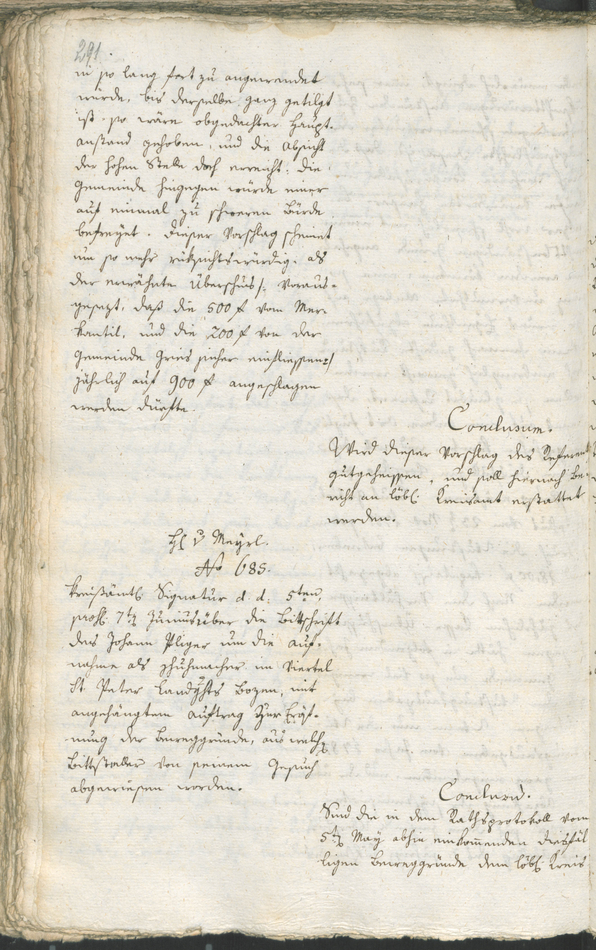 291.
in so lang fort zu angewendet
würde, bis derselbe ganz getilgt
ist. so wäre obgedachter Haupt-
anstand gehoben, und die Absicht
der hohen Stelle doch erreicht: die
Gemeinde hingegen würde einer
auf einmal zu schweren Bürde
befreyet. Dieser Vorschlag scheinet
um so mehr rüksichtswürdig, als
der erwähnte Überschuss /: voraus-
gesezt, daß die 500 f vom Mer-
kantil, und die 200 f von der
Gemeinde Gries sicher einfliessen :/
jährlich auf 900 f angeschlagen
werden dürfte.
Conclusum.
Wird dieser Vorschlag des Referent
gutgeheissen, und soll hiernach Be-
richt an löbl. Kreisamt erstattet
werden.
H v Mayrl.
No 685.
Kreisämtl Signatur d. d. 5ten,
præs. 7ten Junius über die Bittschrift
des Johann Pliger um die Auf-
nahme als Schuhmacher im Viertel
St. Peter Landghts Bozen, mit
angehängtem Auftrag zur Eröf-
nung der Beweggründe, aus welch
Bittsteller von seinem Gesuch
abgewiesen worden.
Conclusum.
Sind die in dem Rathsprotokoll vom
5ten May abhin einkommenden diesfäl
ligen Beweggründe dem löbl. Kreis